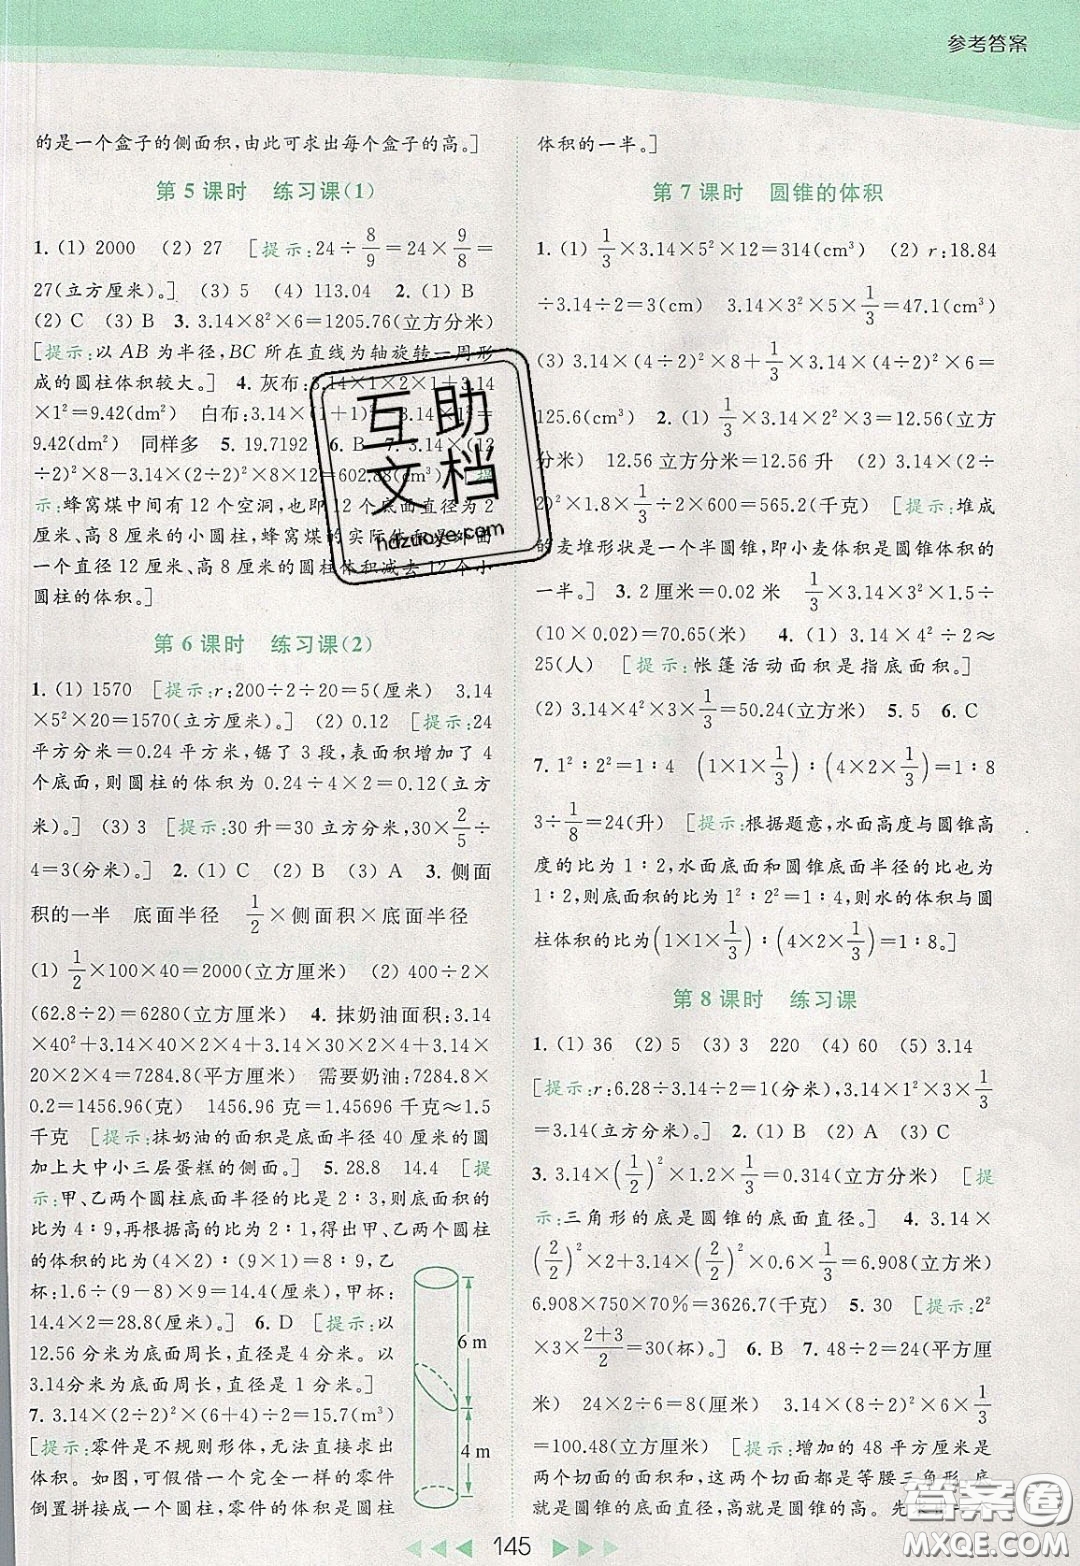 参考答案
的是一个盒子的侧面积,由此可求出每个盒子的高。]
第 5 课时 练习课(1)
1. (1) 2000 (2) 27 [提示:24÷8/9=24×9/8=
27(立方厘米)。] (3) 5 (4) 113.04 2. (1) B
(2) C (3) B 3. 3.14×8²×6=1205.76(立方分米)
[提示:以 AB 为半径,BC 所在直线为轴旋转一周形
成的圆柱体积较大。] 4. 灰布:3.14×1×2×1+3.14
×1²=9.42(dm²) 白布:3.14×(1+1)²-3.14×1²=
9.42(dm²) 同样多 5. 19.7192 6. B 7. 3.14×(12
÷2)²×8-3.14×(2÷2)²×8×12=602.88(cm³) [提
示:蜂窝煤中间有 12 个空洞,也即 12 个底面直径为 2
厘米、高 8 厘米的小圆柱,蜂窝煤的实际体
一个直径 12 厘米、高 8 厘米的圆柱体积减去 12 个小
圆柱的体积。]
第 6 课时 练习课(2)
1. (1) 1570 [提示:r:200÷2÷20=5(厘米) 3.14
×5²×20=1570(立方厘米)。] (2) 0.12 [提示:24
平方分米=0.24 平方米,锯了 3 段,表面积增加了 4
个底面,则圆柱的体积为 0.24÷4×2=0.12(立方
米)。] (3) 3 [提示:30 升=30 立方分米,30×2/5÷
4=3(分米)。] 2. (1) C (2) B (3) A 3. 侧面
积的一半 底面半径 1/2×侧面积×底面半径
(1) 1/2×100×40=2000(立方厘米) (2) 400÷2×
(62.8÷2)=6280(立方厘米) 4. 抹奶油面积:3.14
×40²+3.14×40×2×4+3.14×30×2×4+3.14×
20×2×4=7284.8(平方厘米) 需要奶油:7284.8×
0.2=1456.96(克) 1456.96 克=1.45696 千克≈1.5
千克 [提示:抹奶油的面积是底面半径 40 厘米的圆
加上大中小三层蛋糕的侧面。] 5. 28.8 14.4 [提
示:甲、乙两个圆柱底面半径的比是 2∶3,则底面积的
比为 4∶9,再根据高的比为 2∶1,得出甲、乙两个圆柱
的体积的比为(4×2)∶(9×1)=8∶9,乙
杯:1.6÷(9-8)×9=14.4(厘米),甲杯:
14.4×2=28.8(厘米)。] 6. D [提示:以
12.56 分米为底面周长,直径是 4 分米;以
3.14 分米为底面周长,直径是 1 分米。]
7. 3.14×(2÷2)²×(6+4)÷2=15.7(m³)
[提示:零件是不规则形体,无法直接求出
体积。如图,可假借一个完全一样的零件
倒置拼接成一个圆柱,零件的体积是圆柱
6 m
4 m
体积的一半。]
第 7 课时 圆锥的体积
1. (1) 1/3×3.14×5²×12=314(cm³) (2) r:18.84
÷3.14÷2=3(cm) 3.14×3²×5×1/3=47.1(cm³)
(3) 3.14×(4÷2)²×8+1/3×3.14×(4÷2)²×6=
125.6(cm³) 2. (1) 1/3×3.14×2²×3=12.56(立方
分米) 12.56 立方分米=12.56 升 (2) 3.14×(2÷
2)²×1.8×1/3÷2×600=565.2(千克) [提示:堆成
的麦堆形状是一个半圆锥,即小麦体积是圆锥体积的
一半。] 3. 2 厘米=0.02 米 1/3×3.14×3²×1.5÷
(10×0.02)=70.65(米) 4. (1) 3.14×4²÷2≈
25(人) [提示:帐篷活动面积是指底面积。]
(2) 3.14×4²×3×1/3=50.24(立方米) 5. 5 6. C
7. 1²∶2²=1∶4 (1×1×1/3)∶(4×2×1/3)=1∶8
3÷1/8=24(升) [提示:根据题意,水面高度与圆锥高
度的比为 1∶2,水面底面和圆锥底面半径的比也为
1∶2,则底面积的比为 1²∶2²=1∶4,则水的体积与圆
柱体积的比为(1×1×1/3)∶(4×2×1/3)=1∶8。]
第 8 课时 练习课
1. (1) 36 (2) 5 (3) 3 220 (4) 60 (5) 3.14
[提示:r:6.28÷3.14÷2=1(分米),3.14×1²×3×1/3
=3.14(立方分米)。] 2. (1) B (2) A (3) C
3. 3.14×(1/2)²×1.2×1/3=0.314(立方分米) [提
示:三角形的底是圆锥的底面直径。] 4. 3.14
×(2/2)²×2+3.14×(2/2)²×0.6×1/3=6.908(立方米)
6.908×750×70%=3626.7(千克) 5. 30 [提示:2²
×3×(2+3)/2=30(杯)。] 6. B 7. 48÷2=24(平方厘
米) 24×2÷6=8(厘米) 3.14×(8÷2)²×6×1/3
=100.48(立方厘米) [提示:增加的 48 平方厘米是
两个切面的面积和,这两个切面都是等腰三角形,底
就是圆锥的底面直径,高就是圆锥的高。先
145
互助
文档
hdzuoye.com
答案圈
MXQE.COM